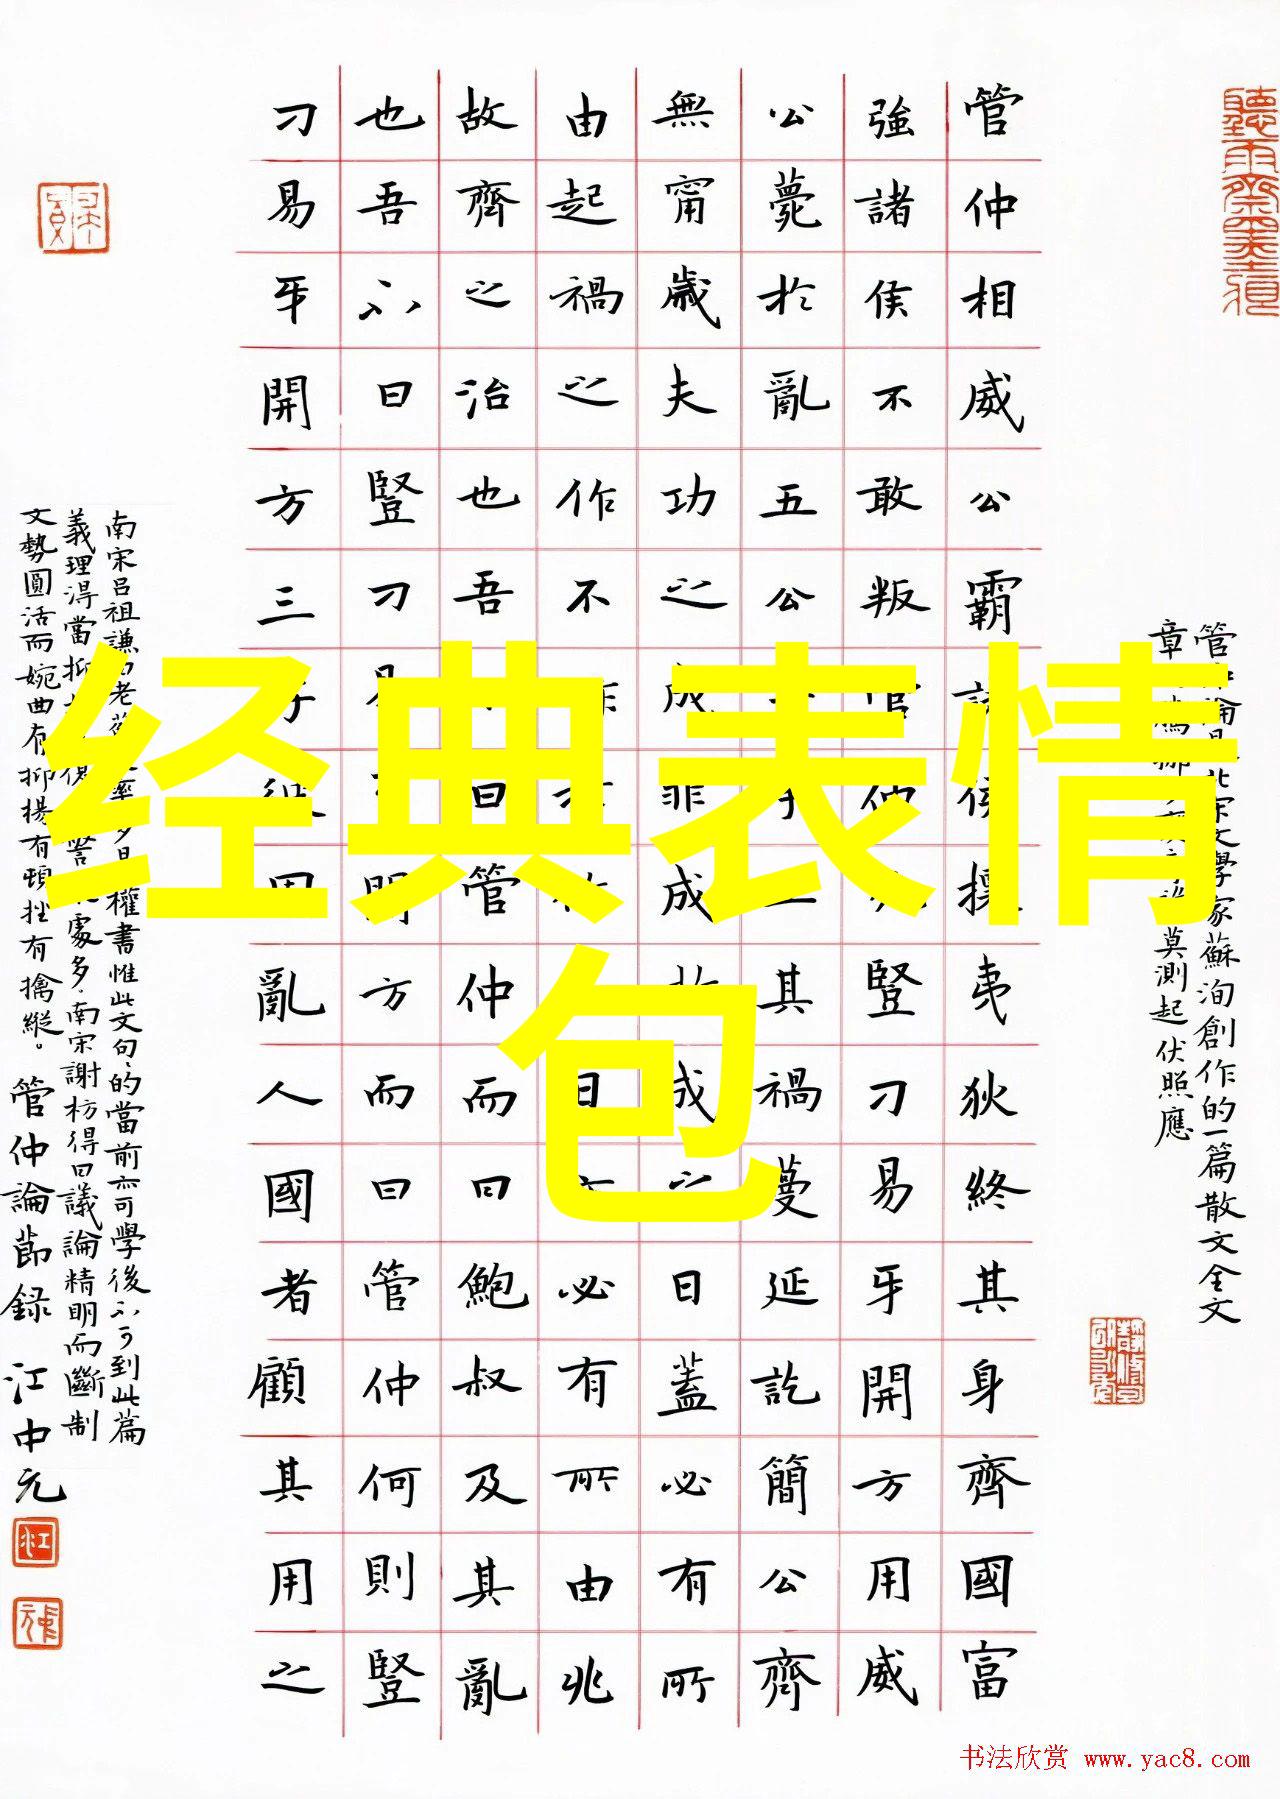 管仲論是北宋文學家蘇洵創作的一篇散文全文
章莫測起伏照應
管仲相威公霸諸侯攘夷狄終其身齊國富
強諸侯不敢叛管仲豎刁易牙開方用威
公薨於亂五公其禍蔓延訖簡公齊
無甯歲夫功之成非成於成之日蓋必有所
由起禍之作不作於作日亦必有所由兆
故齊之治也吾不曰管仲而曰鮑叔及其亂
也吾不曰豎刁易開方而曰管仲何則豎
刁易牙開方三子彼固亂人國者顧其用之
南宋呂祖謙曰老蘇率多是權書惟此文句句的當前亦可學後不可到此篇
義理得當抑處多南宋謝枋得曰議論精明而斷制
文勢圓活而婉曲有抑揚有頓挫有擒縱。管仲論節録 江中元
经典表情
包
书法欣赏 www.yac8.com